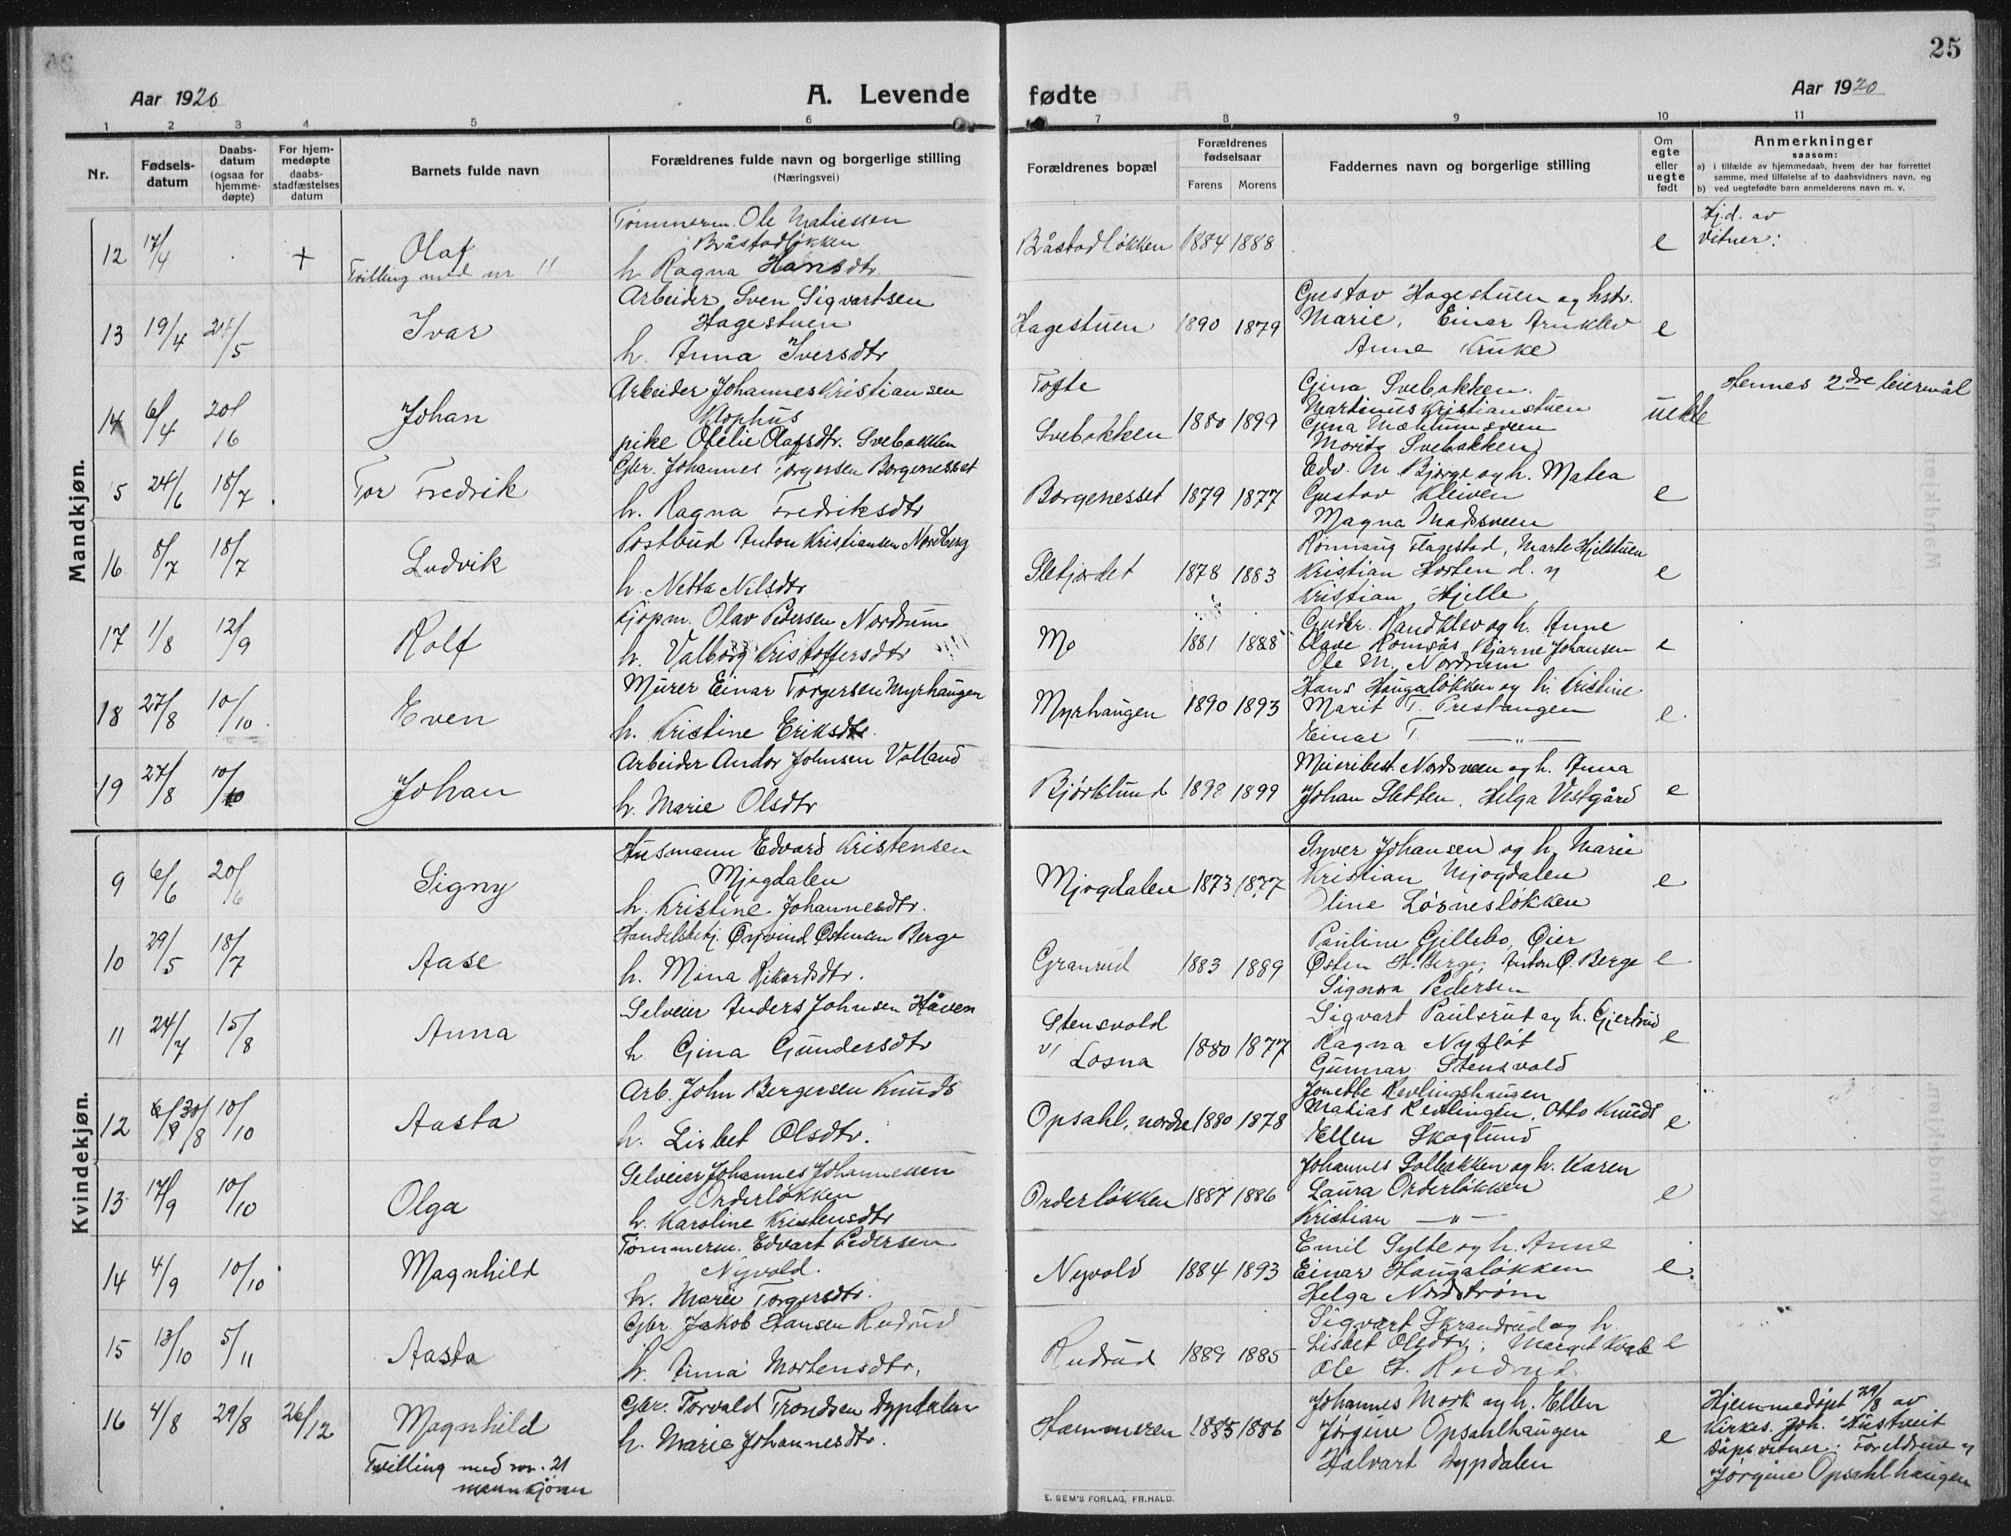 25
Aar 1920
A. Levende
fødte
Aar 1920
1 2 3 4 5 6 7 8 9 10 11
Nr.
Fødsels-
datum
Daabs-
datum
(ogsaa for
hjemme-
døpte)
For hjem-
medøpte
daabs-
stadfæstelses
datum
Barnets fulde navn
Forældrenes fulde navn og borgerlige stilling
(Næringsvei)
Forældrenes bopæl
Forældrenes
fødselsaar
Farens
Morens
Faddernes navn og borgerlige stilling
Om
egte
eller
uegte
født
Anmerkninger
saasom:
a) i tilfælde av hjemmedaab, hvem der har forrettet
samme, med tilføielse af to daabsvidners navn, og
b) ved uegtefødte barn anmelderens navn m. v.
Mandkjøn.
12 17/4 + Olaf
Tvilling med nr 11
Tømmerm. Ole Matiessen
Bråstadløkken
h. Ragna Hansdtr
Bråstadløkken 1884 1888 e
Hj.d. av
Vitner:
13 19/4 24/5 Ivar
Arbeider Sven Sigvartsen
Hagestuen
h. Anna Iversdtr
Hagestuen 1890 1879
Gustav Hagestuen og hstr.
Marie, Einar Aruklev
Anne Kruke
e
14 6/4 20/16 Johan
Arbeider Johannes Kristiansen
Klophus
pike Ofelie Olafsdtr. Svebakken
Tofte
Svebakken 1880 1899
Gina Svebakken.
Martinus Kristianstuen
Gina Mæhlumsveen
Morits Svebakken
uekte
Hennes 2dre leiermål
5 24/6 18/7 Tor Fredrik
Gbr. Johannes Torgersen Borgenesset
h. Ragna Fredriksdtr
Borgenesset 1879 1877
Edv. M. Bjørge og h. Matea
Gustav Kleiven
Magna Madsveen
e
16 8/7 18/7 Ludvik
Postbud Anton Kristiansen Nordberg
h. Netta Nilsdtr
Sletjordet 1878 1883
Rønnaug Flagestad, Marte Hjelstuen
Kristian Horten d. y
Kristian Hjelle
e
17 1/8 12/9 Rolf
Kjøpm. Olav Pedersen Nordrum
h. Valborg Kristoffersdtr
Mo 1881 1888
Gudbr. Randklev og h. Anne
Olave Romsås, Bjarne Johansen
Ole M. Nordrum
e
18 27/8 10/10 Even
Murer Einar Torgersen Myrhaugen
h. Kristine Eriksdtr.
Myrhaugen 1890 1893
Hans Haugaløkken og h. Kristine
Marit T. Prestangen
Einar T. —„—
e.
19 27/8 10/10 Johan
Arbeider Andor Johnsen Volland
h. Marie Olsdtr
Bjørklund 1898 1899
Murerbest. Nordsveen og h. Anna
Johan Sletten. Helga Vestgård
e
Kvindekjøn.
9 6/6 20/6 Signy
Husmann Edvard Kristensen
Mjogdalen
h. Kristine Johannesdtr.
Mjogdalen 1873 1877
Syver Johansen og h. Marie
Kristian Mjogdalen
Oline Løsnesløkken
e
10 29/5 18/7 Aase
Handelsbetj. Øyvind Østensen Berge
h. Mina Rikardsdtr.
Granrud 1883 1889
Pauline Gillebo, Øier
Østen H. Berge, Anton Ø. Berge
Signora Pedersen
e
11 24/7 15/8 Anna
Selveier Anders Johnsen Håven
h. Gina Gundersdtr
Stensvold
v/ Losna 1880 1877
Sigvart Paulsrut og h. Gjertrud
Ragna Nyfløt
Gunnar Stensvold
e
12 6/9 30/8 10/10 Aasta
Arb. John Bergersen Knuds
h. Lisbet Olsdtr.
Opsahl, nordre 1880 1878
Jonette Revlingshaugen
Matias Revlingen, Otto Knuds
Ellen Skoglund
e
13 17/9 10/10 Olga
Selveier Johannes Johannessen
Orderløkken
h. Karoline Kristensdtr
Orderløkken 1887 1886
Johannes Solbakken og h. Karen
Laura Orderløkken
Kristian —„—
e
14 4/9 10/10 Magnhild
Tømmerm. Edvart Pedersen
Nyvold.
h. Marie Torgersdtr.
Nyvold 1884 1893
Emil Sylte og h. Anne
Einar Haugaløkken
Helga Nordstrøm
e.
15 13/10 5/11 Aasta
Gbr. Jakob Hansen Rudrud
h. Anna Mortensdtr.
Rudrud 1889 1885
Sigvart Skrandrud og h.
Lisbet Olsdtr; Margit Kval
Ole H. Rudrud.
e
16 4/8 29/8 26/12 Magnhild
Tvilling med nr. 21
mannkjønn
Gbr. Torvald Trondsen Dypdalen
h. Marie Johannesdtr.
Hammeren 1885 1886
Johannes Mork og h. Ellen
Jørgine Opsahlhaugen
Halvart Dypdalen
e
Hjemmedøpt 29/8 av
Kirkes. Joh. Hustveit
Dåpsvitner: Foreldrene og
Jørgine Opsahlhaugen
E. SEM'S FORLAG, FR.HALD.